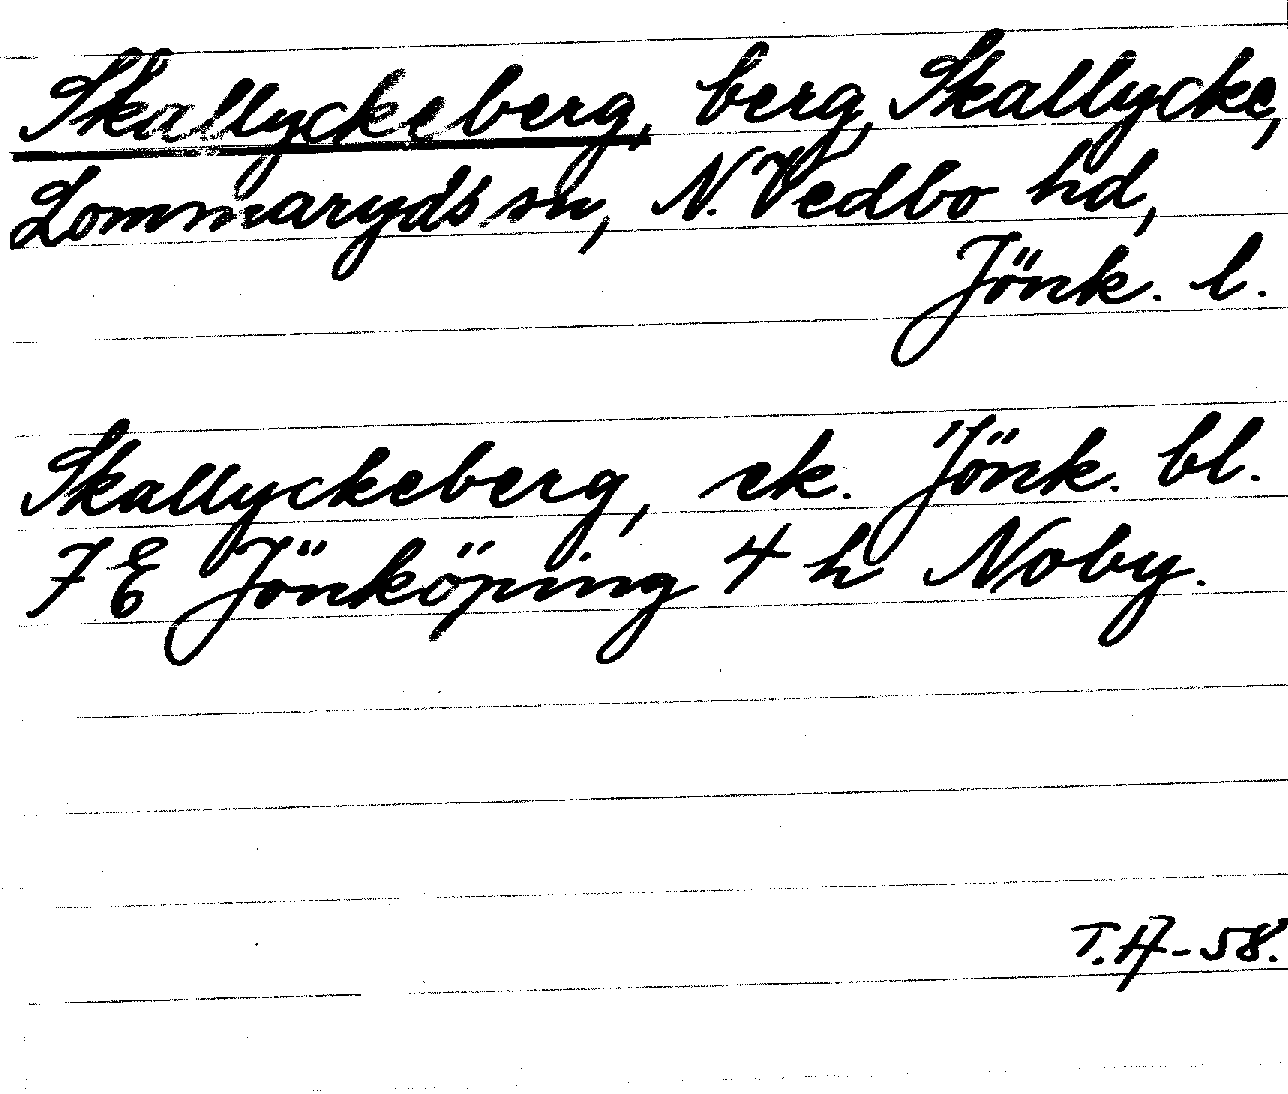 Skallyckeberg, berg, Skallycke,
Lommaryds sn, N. Vedbo hd,
Jönk. l.
Skallyckeberg, ek. Jönk. bl.
7 E Jönköping 4 h Noby.
T. A-58.